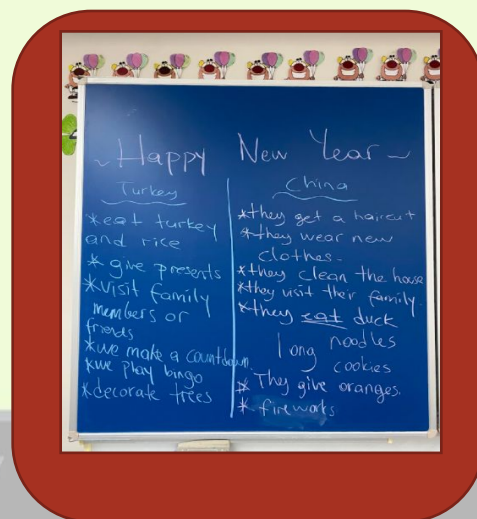 ~ Happy New Year ~
Turkey
*eat turkey
and rice
* give presents
*visit family
members or
friends
*we make a countdown.
*we play bingo
*decorate trees
China
*they get a haircut
*they wear new
clothes.
*they clean the house
*they visit their family.
*they eat duck
long noodles
cookies
* They give oranges.
* fireworks